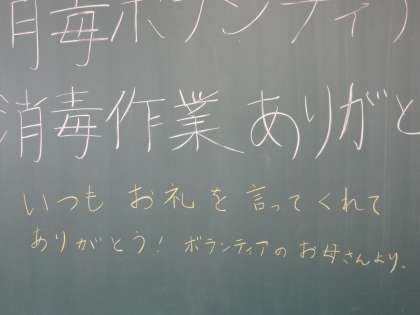 消毒ボランティア
消毒作業 ありがと
いつも お礼を言ってくれて
ありがとう! ボランティアのお母さんより.